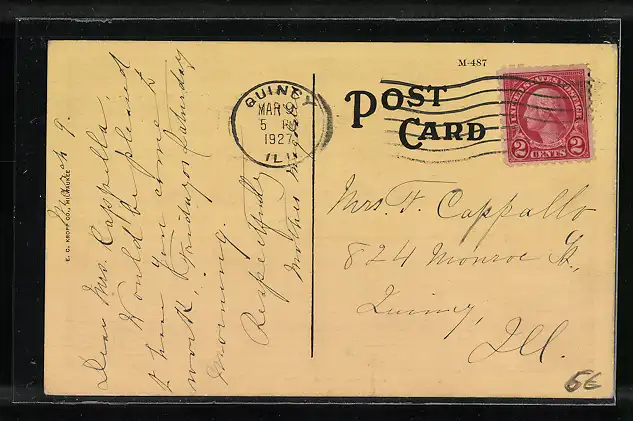 March 9.
Dear Mrs. Cappella.
Would be pleased
to have you come to
work, Friday or Saturday
morning.
Respectfully
Mother
E. C. KROPP CO., MILWAUKEE
QUINCY
MAR 9
5 PM
1927
ILL
M-487
POST
CARD
UNITED STATES POSTAGE
2 CENTS 2
Mrs. F. Cappallo
824 Monroe St.,
Quincy,
Ill.
5€